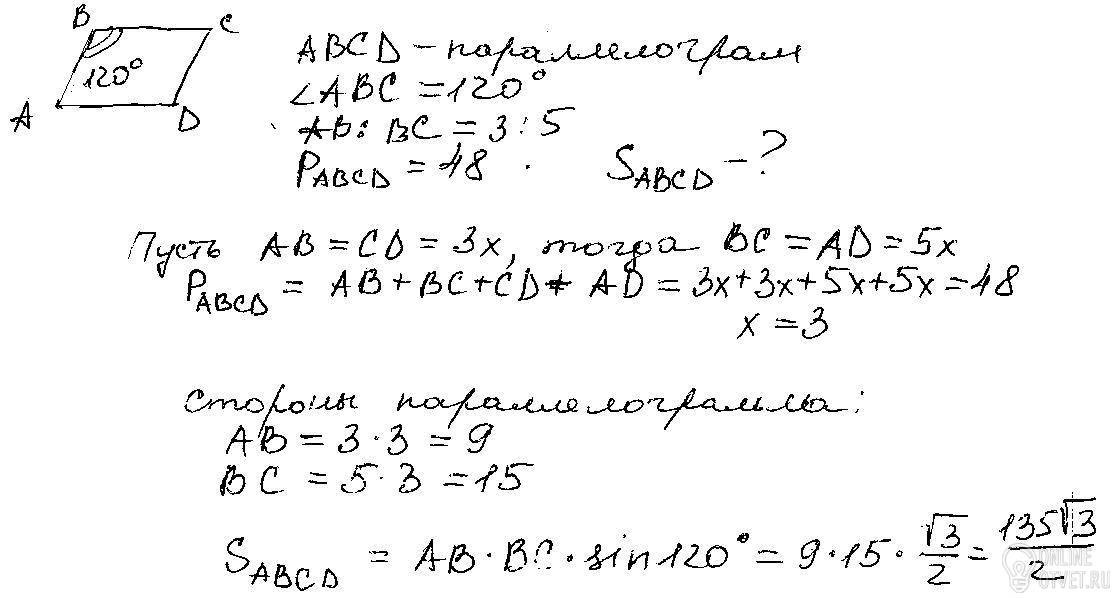 B C
120°
A D
ABCD – параллелограм
∠ABC = 120°
AB : BC = 3 : 5
P_ABCD = 48 . S_ABCD – ?
Пусть AB = CD = 3x, тогда BC = AD = 5x
P_ABCD = AB + BC + CD + AD = 3x + 3x + 5x + 5x = 48
x = 3
Стороны параллелограмма:
AB = 3 · 3 = 9
BC = 5 · 3 = 15
S_ABCD = AB · BC · sin 120° = 9 · 15 · √3/2 = 135√3/2
ONLINE
OTVET.RU